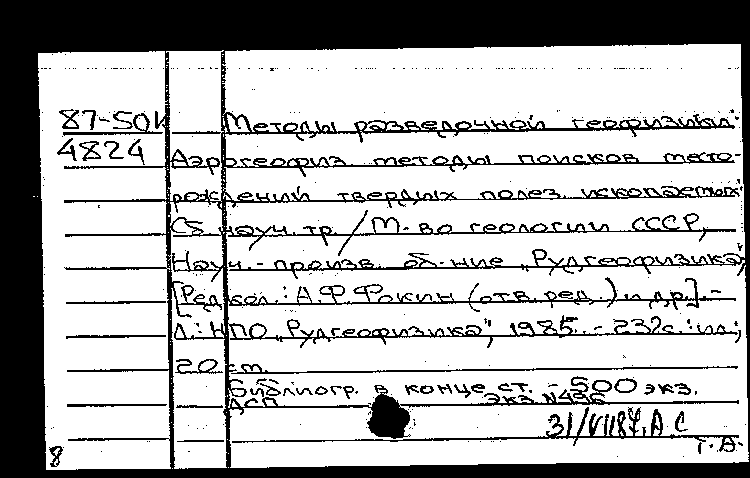 87-50К Методы разведочной геофизики:
4824 Аэрогеофиз. методы поисков место-
рождений твердых полез. ископаемых:
Сб. науч. тр. / М-во геологии СССР,
Науч.-произв. об-ние „Рудгеофизика";
[Редкол.: А.Ф. Фокин (отв. ред.) и др.]. -
Л.: НПО „Рудгеофизика", 1985. - 232с.: ил.;
20 см.
Библиогр. в конце ст. - 500 экз.
ДСП экз. N436
А.С
8 Т.А.